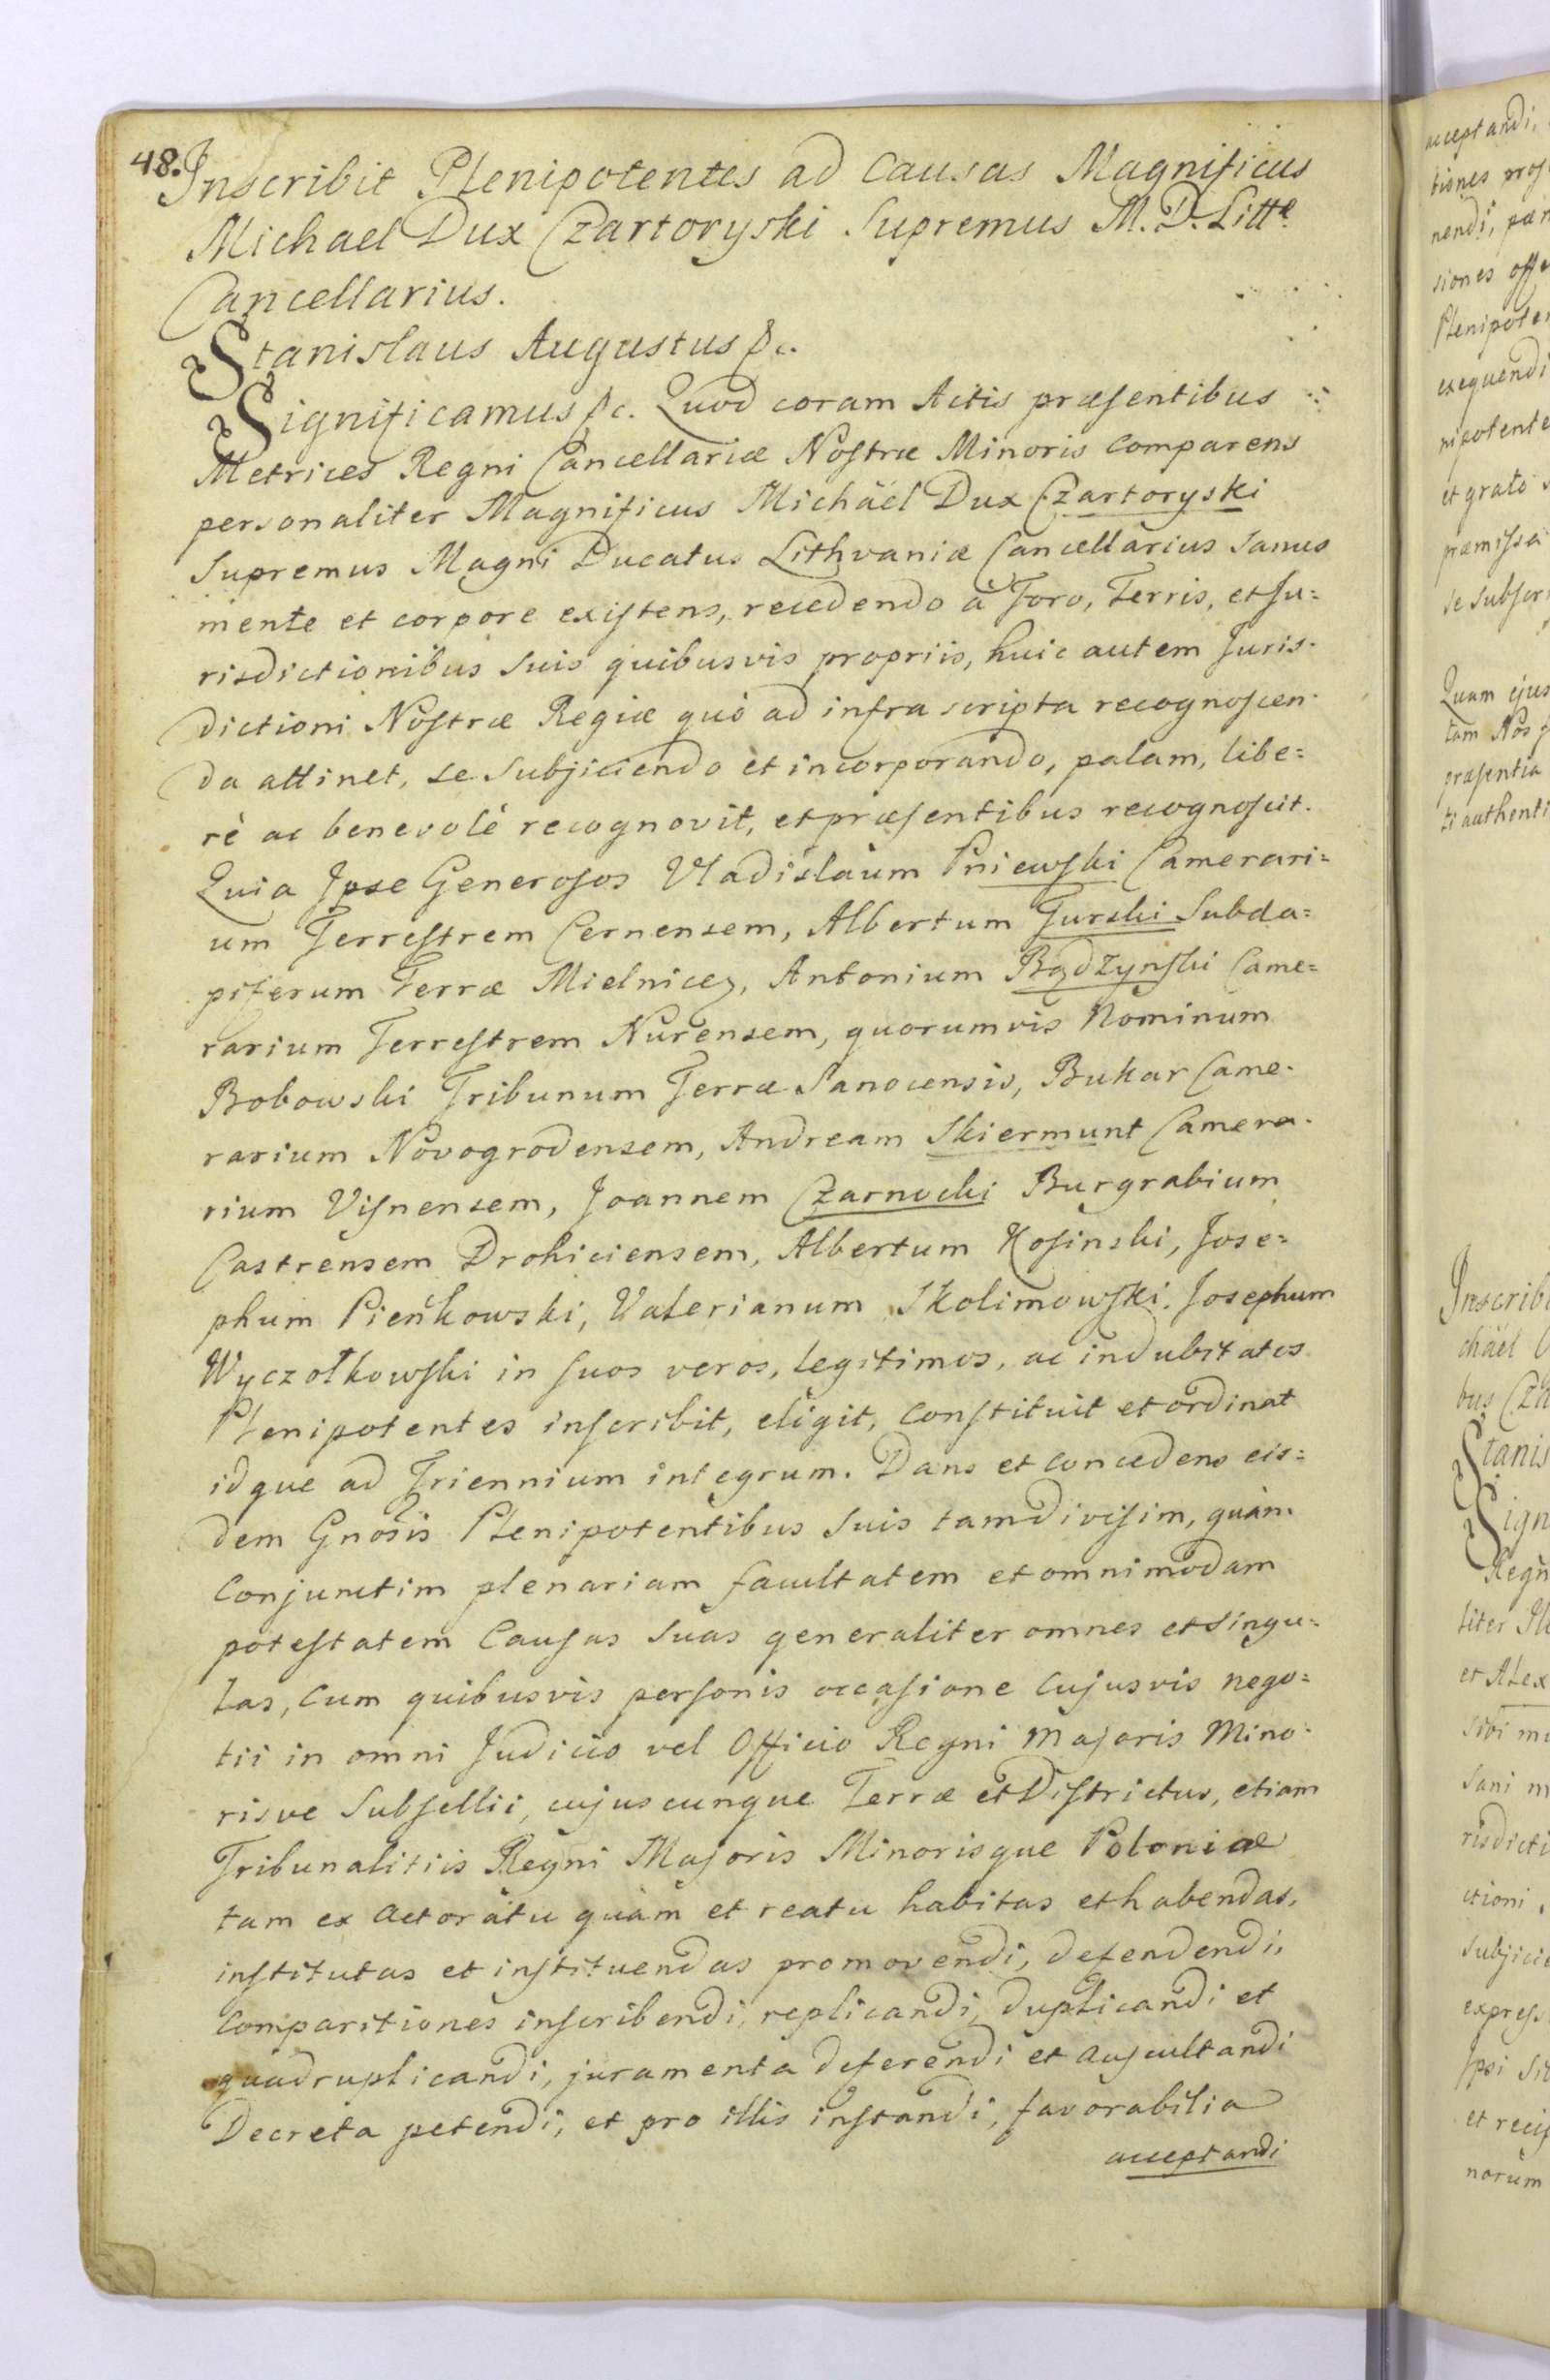 48.
Inscribit Plenipotentes ad Causas Magnificus
Michael Dux Czartoryski Supremus M. D. Littæ
Cancellarius.
Stanislaus Augustus &c.
Significamus &c. Quod coram Actis præsentibus
Metrices Regni Cancellariæ Nostræ Minoris comparens
personaliter Magnificus Michäel Dux Czartoryski
Supremus Magni Ducatus Lithvaniæ Cancellarius sanus
mente et corpore existens, recedendo à Foro, Terris, et Ju=
risdictionibus suis quibusvis propriis, huic autem Juris-
dictioni Nostræ Regiæ quò ad infra scripta recognoscen-
da attinet, se subjiciendo et incorporando, palam, libe=
rè ac benevolè recognovit, et præsentibus recognoscit.
Quia Ipse Generosos Vladislaum Pniewski Camerari=
um Terrestrem Cernensem, Albertum Turski Subda=
piferum Terræ Mielnicen, Antonium Bądzynski Came=
rarium Terrestrem Nurensem, quorumvis Nominum
Bobowski Tribunum Terræ Sanocensis, Bukar Came-
rarium Novogrodensem, Andream Skiermunt Camera-
rium Visnensem, Joannem Czarnocki Burgrabium
Castrensem Drohiciensem, Albertum Kosinski, Jose=
phum Pieńkowski, Valerianum Skolimowski, Josephum
Wyczołkowski in suos veros, legitimos, ac indubitatos
Plenipotentes inscribit, eligit, constituit et ordinat
idque ad Triennium integrum. Dans et concedens eis=
dem Gnosis Plenipotentibus suis tam divisim, quàm
conjunctim plenariam facultatem et omnimodam
potestatem Causas suas generaliter omnes et singu=
las, cum quibusvis personis occasione cujusvis nego=
tii in omni Judicio vel Officio Regni Majoris Mino-
risve Subsellii, cujuscunque Terræ et Districtus, etiam
Tribunalitiis Regni Majoris Minorisque Poloniæ
tam ex actoratu quàm et reatu habitas et habendas,
institutas et instituendas promovendi, defendendi,
comparitiones inscribendi, replicandi, duplicandi et
quadruplicandi, juramenta deferendi et auscultandi
Decreta petendi, et pro illis instandi, favorabilia
acceptandi